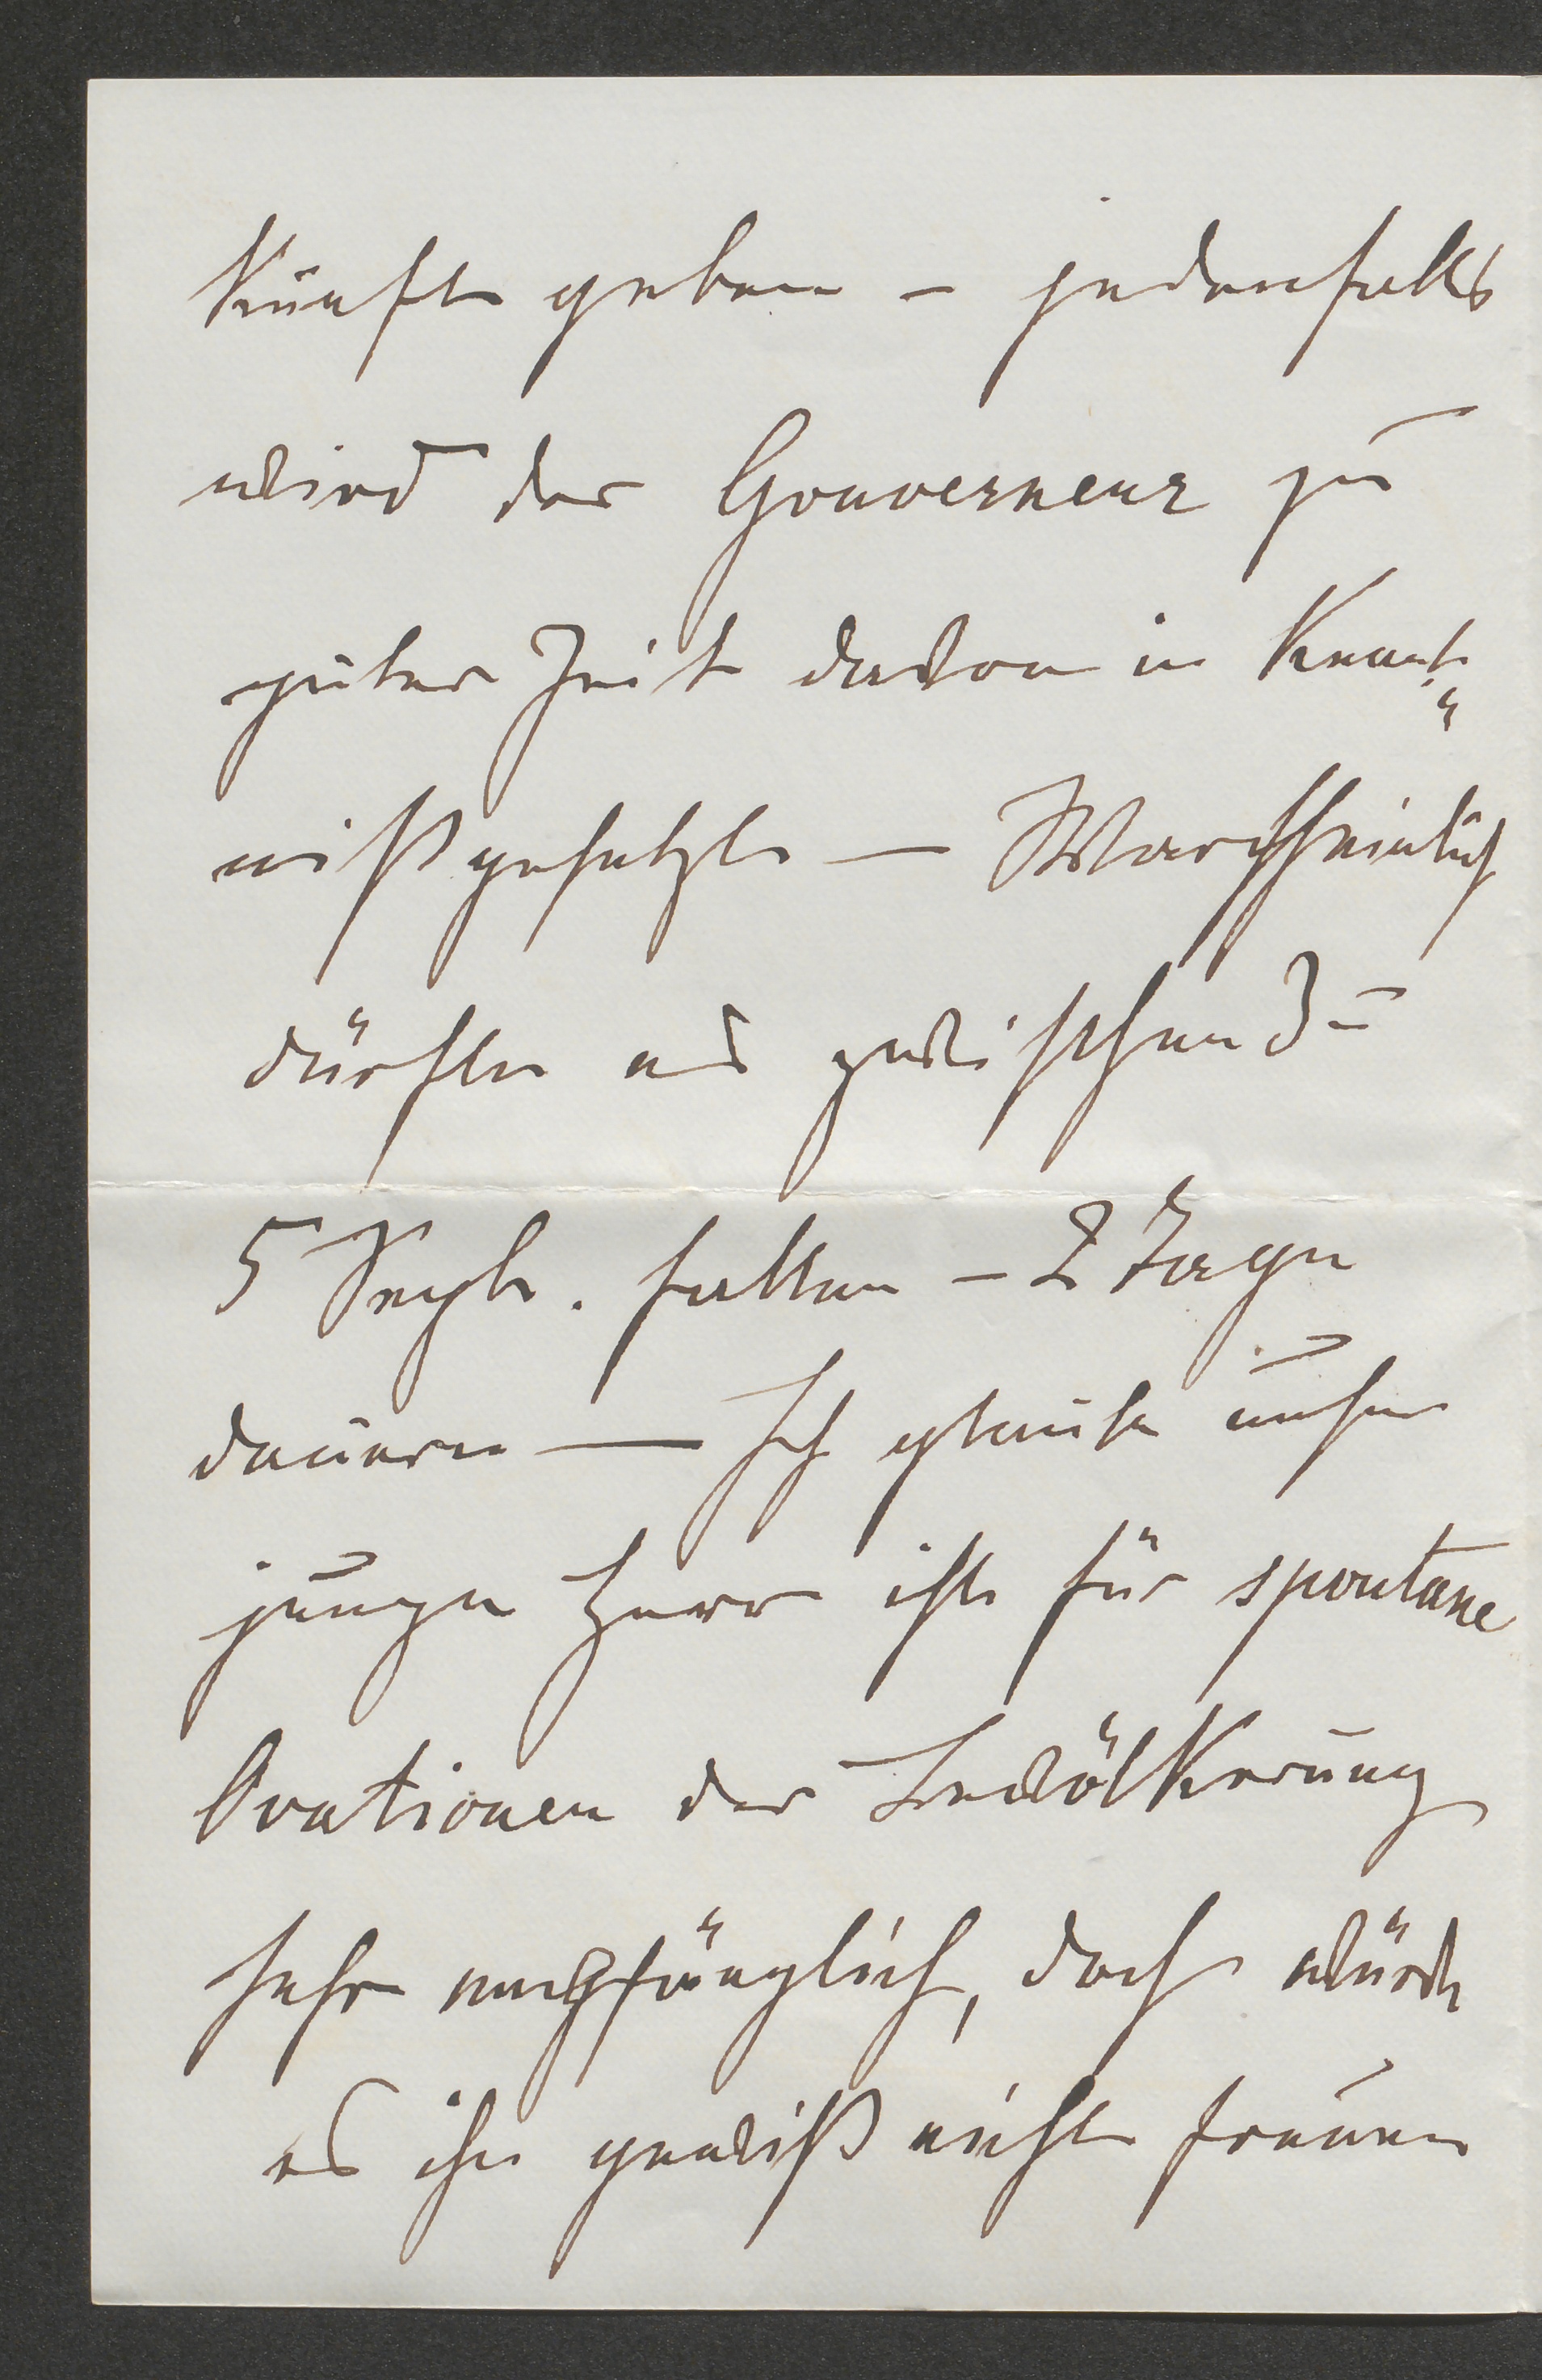 künfte geben – jedenfalls
wird der Gouverneur zu
guter Zeit davon in Kennt„
niß gesetzt — Warscheinlich
dürfte es zwischen 3–
5 Sept. fallen – 2 Tage
dauern — Ich glaube unser
junge Herr ist für spontane
Ovationen der Bevölkerung
sehr empfänglich, doch würde
es ihn gewiß nicht freuen